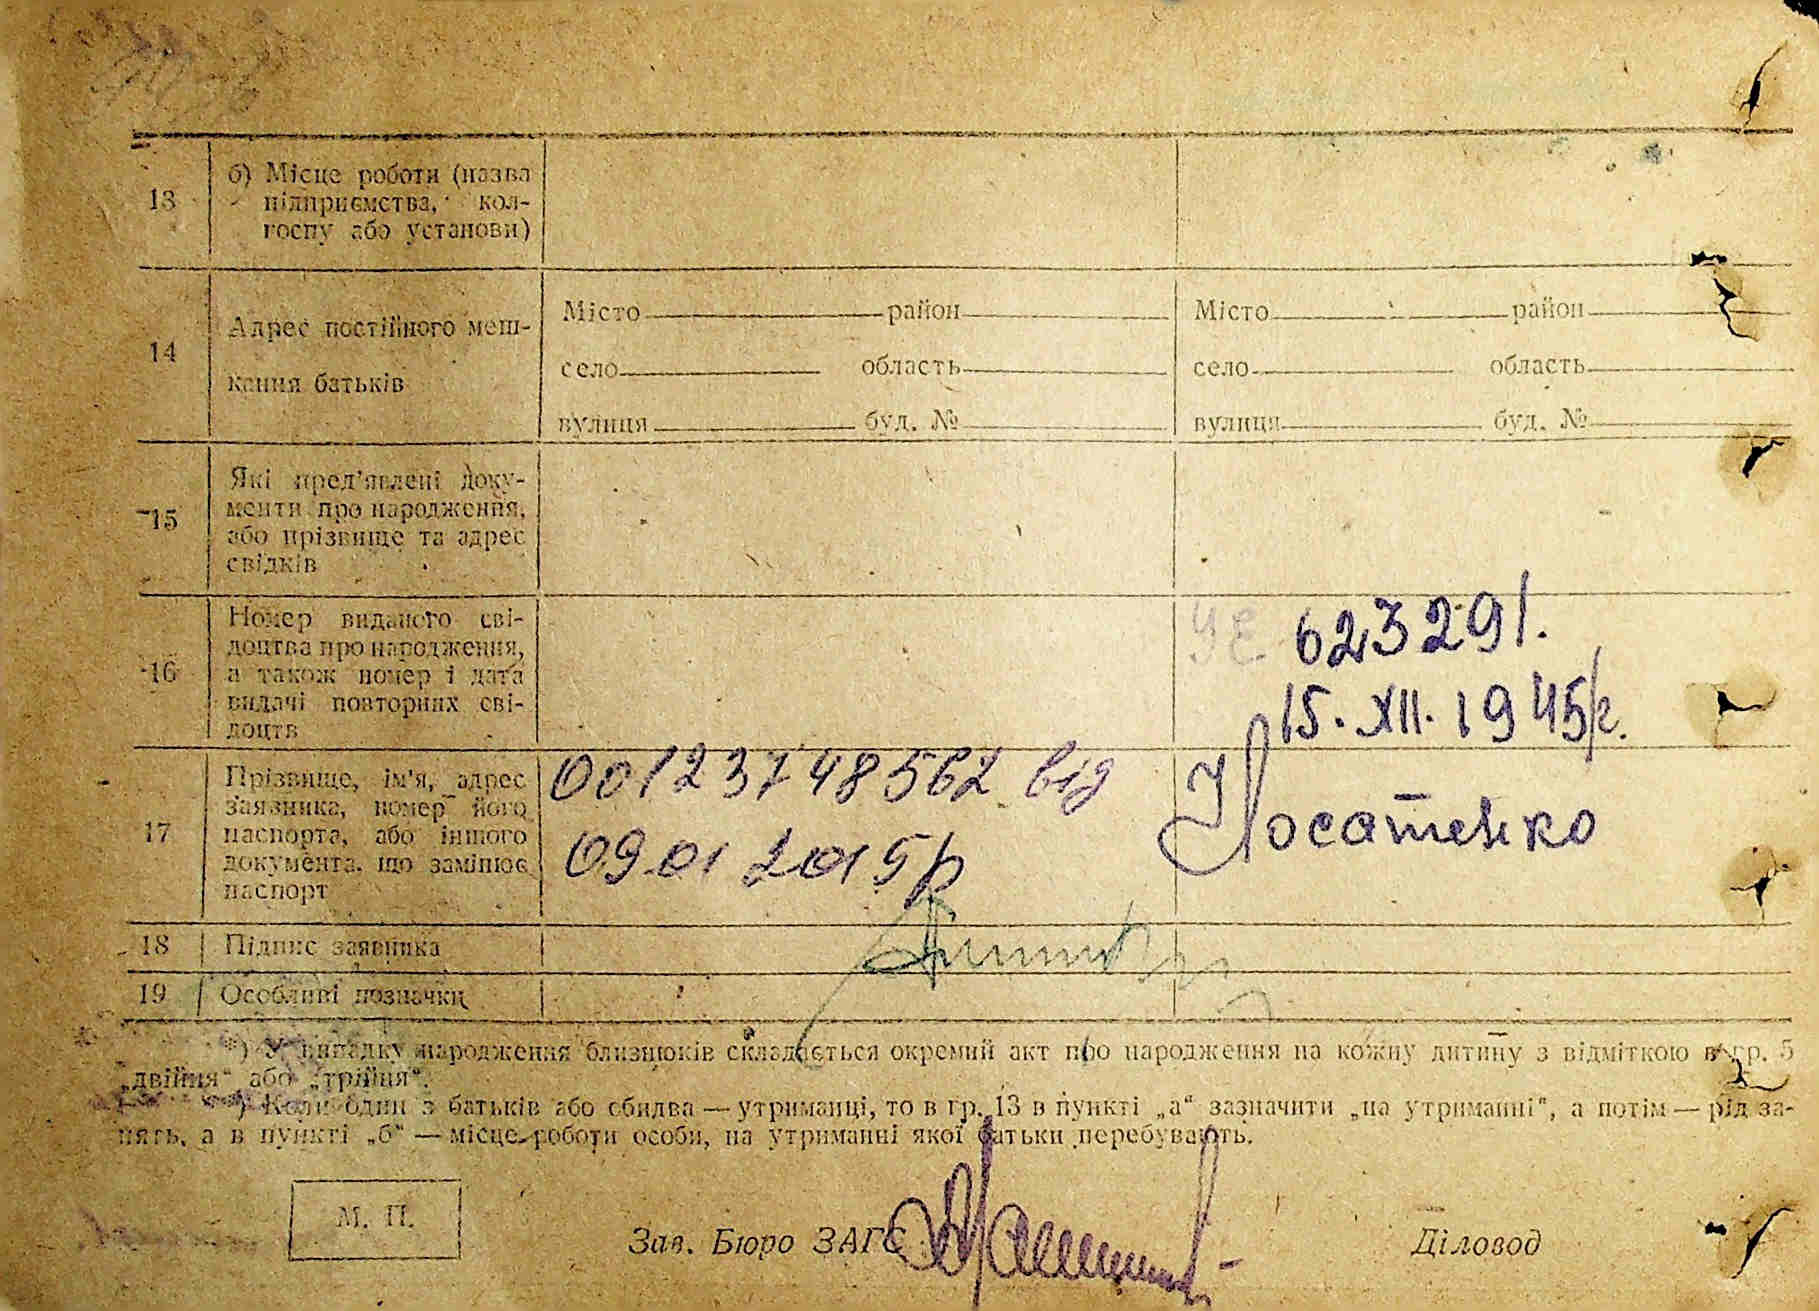 13
б) Місце роботи (назва
підприємства, кол-
госпу або установи)
14
Адрес постійного меш-
кання батьків
Місто район
село область
вулиця буд. №
Місто район
село область
вулиця буд. №
15
Які пред'явлені доку-
менти про народження,
або прізвище та адрес
свідків
16
Номер виданого сві-
доцтва про народження,
а також номер і дата
видачі повторних сві-
доцтв
УЕ 623291.
15. XII. 1945/г.
17
Прізвище, ім'я, адрес
заявника, номер його
паспорта, або іншого
документа, що замінює
паспорт
00123748562 від
09.01 2015р
Носатенко
18 Підпис заявника
19 Особливі позначки
*) У випадку народження близнюків складається окремий акт про народження на кожну дитину з відміткою в гр. 5
„двійня“ або „трійня“.
**) Коли один з батьків або обидва — утриманці, то в гр. 13 в пункті „а“ зазначити „на утриманні“, а потім — рід за-
нять, а в пункті „б“ — місце роботи особи, на утриманні якої батьки перебувають.
М. П.
Зав. Бюро ЗАГС
Діловод